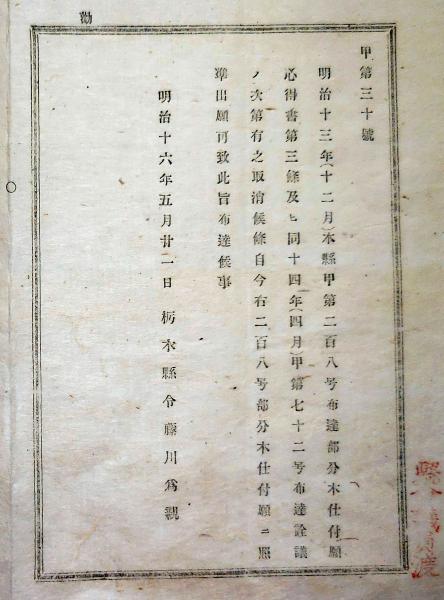 勸
甲第三十號
明治十三年(十二月)本縣甲第二百八号布達部分木仕付願
心得書第三條及ヒ同十四年(四月)甲第七十二号布達詮議
ノ次第有之取消候條自今右二百八号部分木仕付願ニ照
準出願可致此旨布達候事
明治十六年五月廿一日 栃木縣令藤川爲親